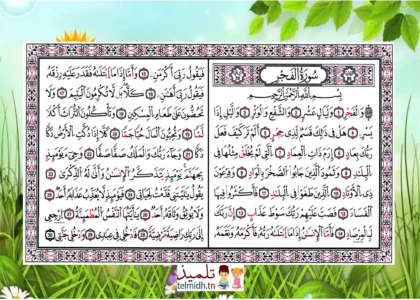 سُورَةُ الْفَجْرِ
بِسْمِ اللَّهِ الرَّحْمَٰنِ الرَّحِيمِ
وَالْفَجْرِ ١ وَلَيَالٍ عَشْرٍ ٢ وَالشَّفْعِ وَالْوَتْرِ ٣ وَالَّيْلِ إِذَا
يَسْرِ ٤ هَلْ فِي ذَٰلِكَ قَسَمٌ لِّذِي حِجْرٍ ٥ أَلَمْ تَرَ كَيْفَ فَعَلَ
رَبُّكَ بِعَادٍ ٦ إِرَمَ ذَاتِ الْعِمَادِ ٧ الَّتِي لَمْ يُخْلَقْ مِثْلُهَا فِي
الْبِلَادِ ٨ وَثَمُودَ الَّذِينَ جَابُوا الصَّخْرَ بِالْوَادِ ٩ وَفِرْعَوْنَ
ذِي الْأَوْتَادِ ١٠ الَّذِينَ طَغَوْا فِي الْبِلَادِ ١١ فَأَكْثَرُوا فِيهَا
الْفَسَادَ ١٢ فَصَبَّ عَلَيْهِمْ رَبُّكَ سَوْطَ عَذَابٍ ١٣ إِنَّ رَبَّكَ
لَبِالْمِرْصَادِ ١٤ فَأَمَّا الْإِنسَٰنُ إِذَا مَا ابْتَلَىٰهُ رَبُّهُ فَأَكْرَمَهُ وَنَعَّمَهُ
فَيَقُولُ رَبِّي أَكْرَمَنِ ١٥ وَأَمَّا إِذَا مَا ابْتَلَىٰهُ فَقَدَرَ عَلَيْهِ رِزْقَهُ
فَيَقُولُ رَبِّي أَهَٰنَنِ ١٦ كَلَّا بَل لَّا تُكْرِمُونَ الْيَتِيمَ ١٧ وَلَا
تَحَٰضُّونَ عَلَىٰ طَعَامِ الْمِسْكِينِ ١٨ وَتَأْكُلُونَ التُّرَاثَ أَكْلًا
لَّمًّا ١٩ وَتُحِبُّونَ الْمَالَ حُبًّا جَمًّا ٢٠ كَلَّا إِذَا دُكَّتِ الْأَرْضُ دَكًّا
دَكًّا ٢١ وَجَاءَ رَبُّكَ وَالْمَلَكُ صَفًّا صَفًّا ٢٢ وَجِيءَ يَوْمَئِذٍ
بِجَهَنَّمَ يَوْمَئِذٍ يَتَذَكَّرُ الْإِنسَٰنُ وَأَنَّىٰ لَهُ الذِّكْرَىٰ ٢٣
يَقُولُ يَٰلَيْتَنِي قَدَّمْتُ لِحَيَاتِي ٢٤ فَيَوْمَئِذٍ لَّا يُعَذِّبُ عَذَابَهُ أَحَدٌ ٢٥
وَلَا يُوثِقُ وَثَاقَهُ أَحَدٌ ٢٦ يَٰأَيَّتُهَا النَّفْسُ الْمُطْمَئِنَّةُ ٢٧ ارْجِعِي
إِلَىٰ رَبِّكِ رَاضِيَةً مَّرْضِيَّةً ٢٨ فَادْخُلِي فِي عِبَٰدِي ٢٩ وَادْخُلِي جَنَّتِي ٣٠
تلميذ
telmidh.tn